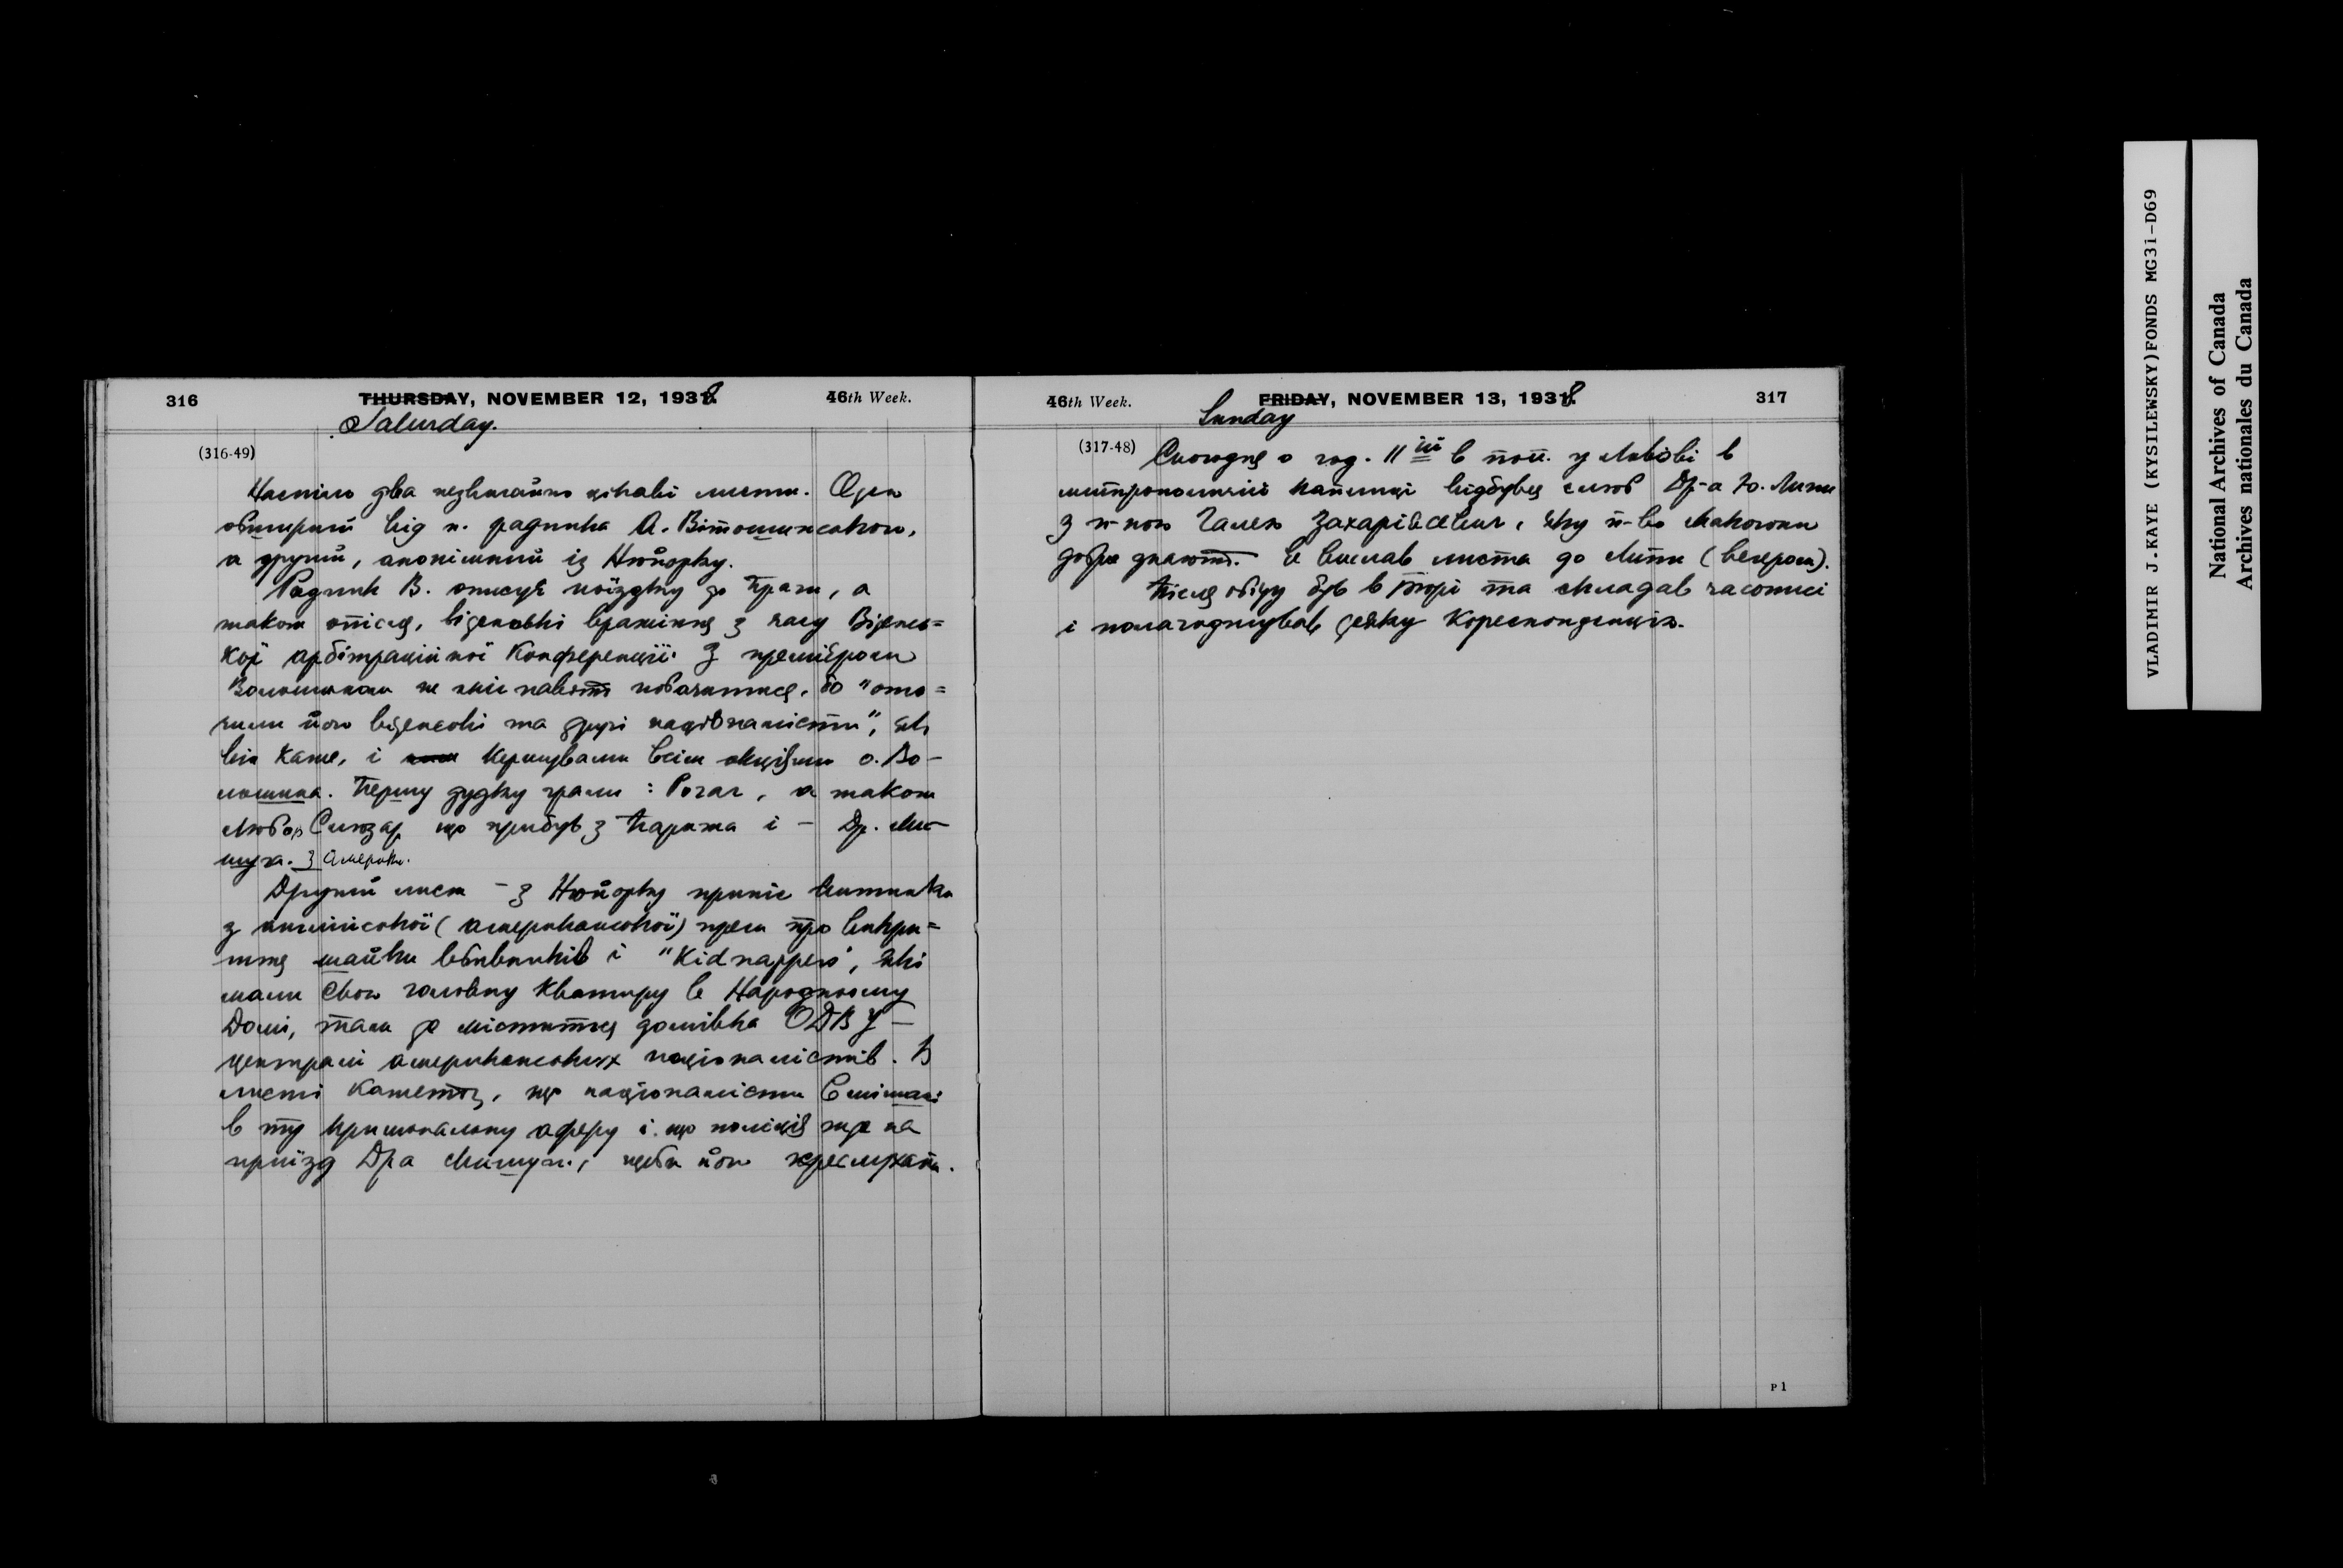 316
THURSDAY, NOVEMBER 12, 1938.
46th Week.
Saturday.
(316-49)
Наспіло два незвичайно цікаві листи. Один
обширний від п. радника А. Вітошинського,
а другий, анонімний із Нюйорку.
Радник В. описує поїздку до Праги, а
також опісля, віденські враження з часу Віденсь=
кої арбітраційної Конференції. З премієром
Волошином не міг навіть побачитися, бо "ото=
чили його віденські та другі націоналісти", як
він каже, і керували всіми акціями о. Во-
лошина. Першу дудку грали: Рогач, а також
Любор Слюзар що прибув з Парижа і – Др. Ми-
шуга. з Америки.
Другий лист – з Нюйорку приніс витинки
з англійської (американської) преси про викри=
ття шайки вбивників і "Kidnappers", які
мали свою головну кватиру в Народному
Домі, там де міститься домівка ОДВУ –
централі американських націоналістів. В
листі кажеться, що націоналісти вмішані
в ту кримінальну аферу і що поліція жде на
приїзд Дра Мишуги, щоби його переслухати.
46th Week.
FRIDAY, NOVEMBER 13, 1938.
317
Sunday
(317-48)
Сьогодня о год. 11ій в пол. у Львові в
митрополичій каплиці відбувся слюб Др-а Ю. Липи
з п-ною Галею Захаріясевич, яку п-во Макогони
добре знають. Я вислав листа до Липи (вечером).
Після обіду був в Бюрі та складав часописі
і полагоджував деяку кореспонденцію.
P 1
VLADIMIR J.KAYE (KYSILEWSKY)FONDS MG31-D69
National Archives of Canada
Archives nationales du Canada